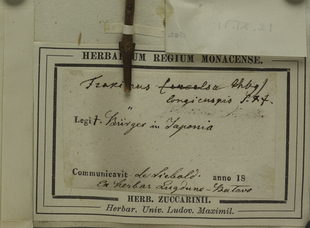 HERBARIUM REGIUM MONACENSE.
Fraxinus Thbg
longicuspis S.&Z.
Legit. Bürger in Japonia
Communicavit de Siebold anno 18
Ex Herbar Lugduno-Batavo
HERB. ZUCCARINII.
Herbar. Univ. Ludov. Maximil.